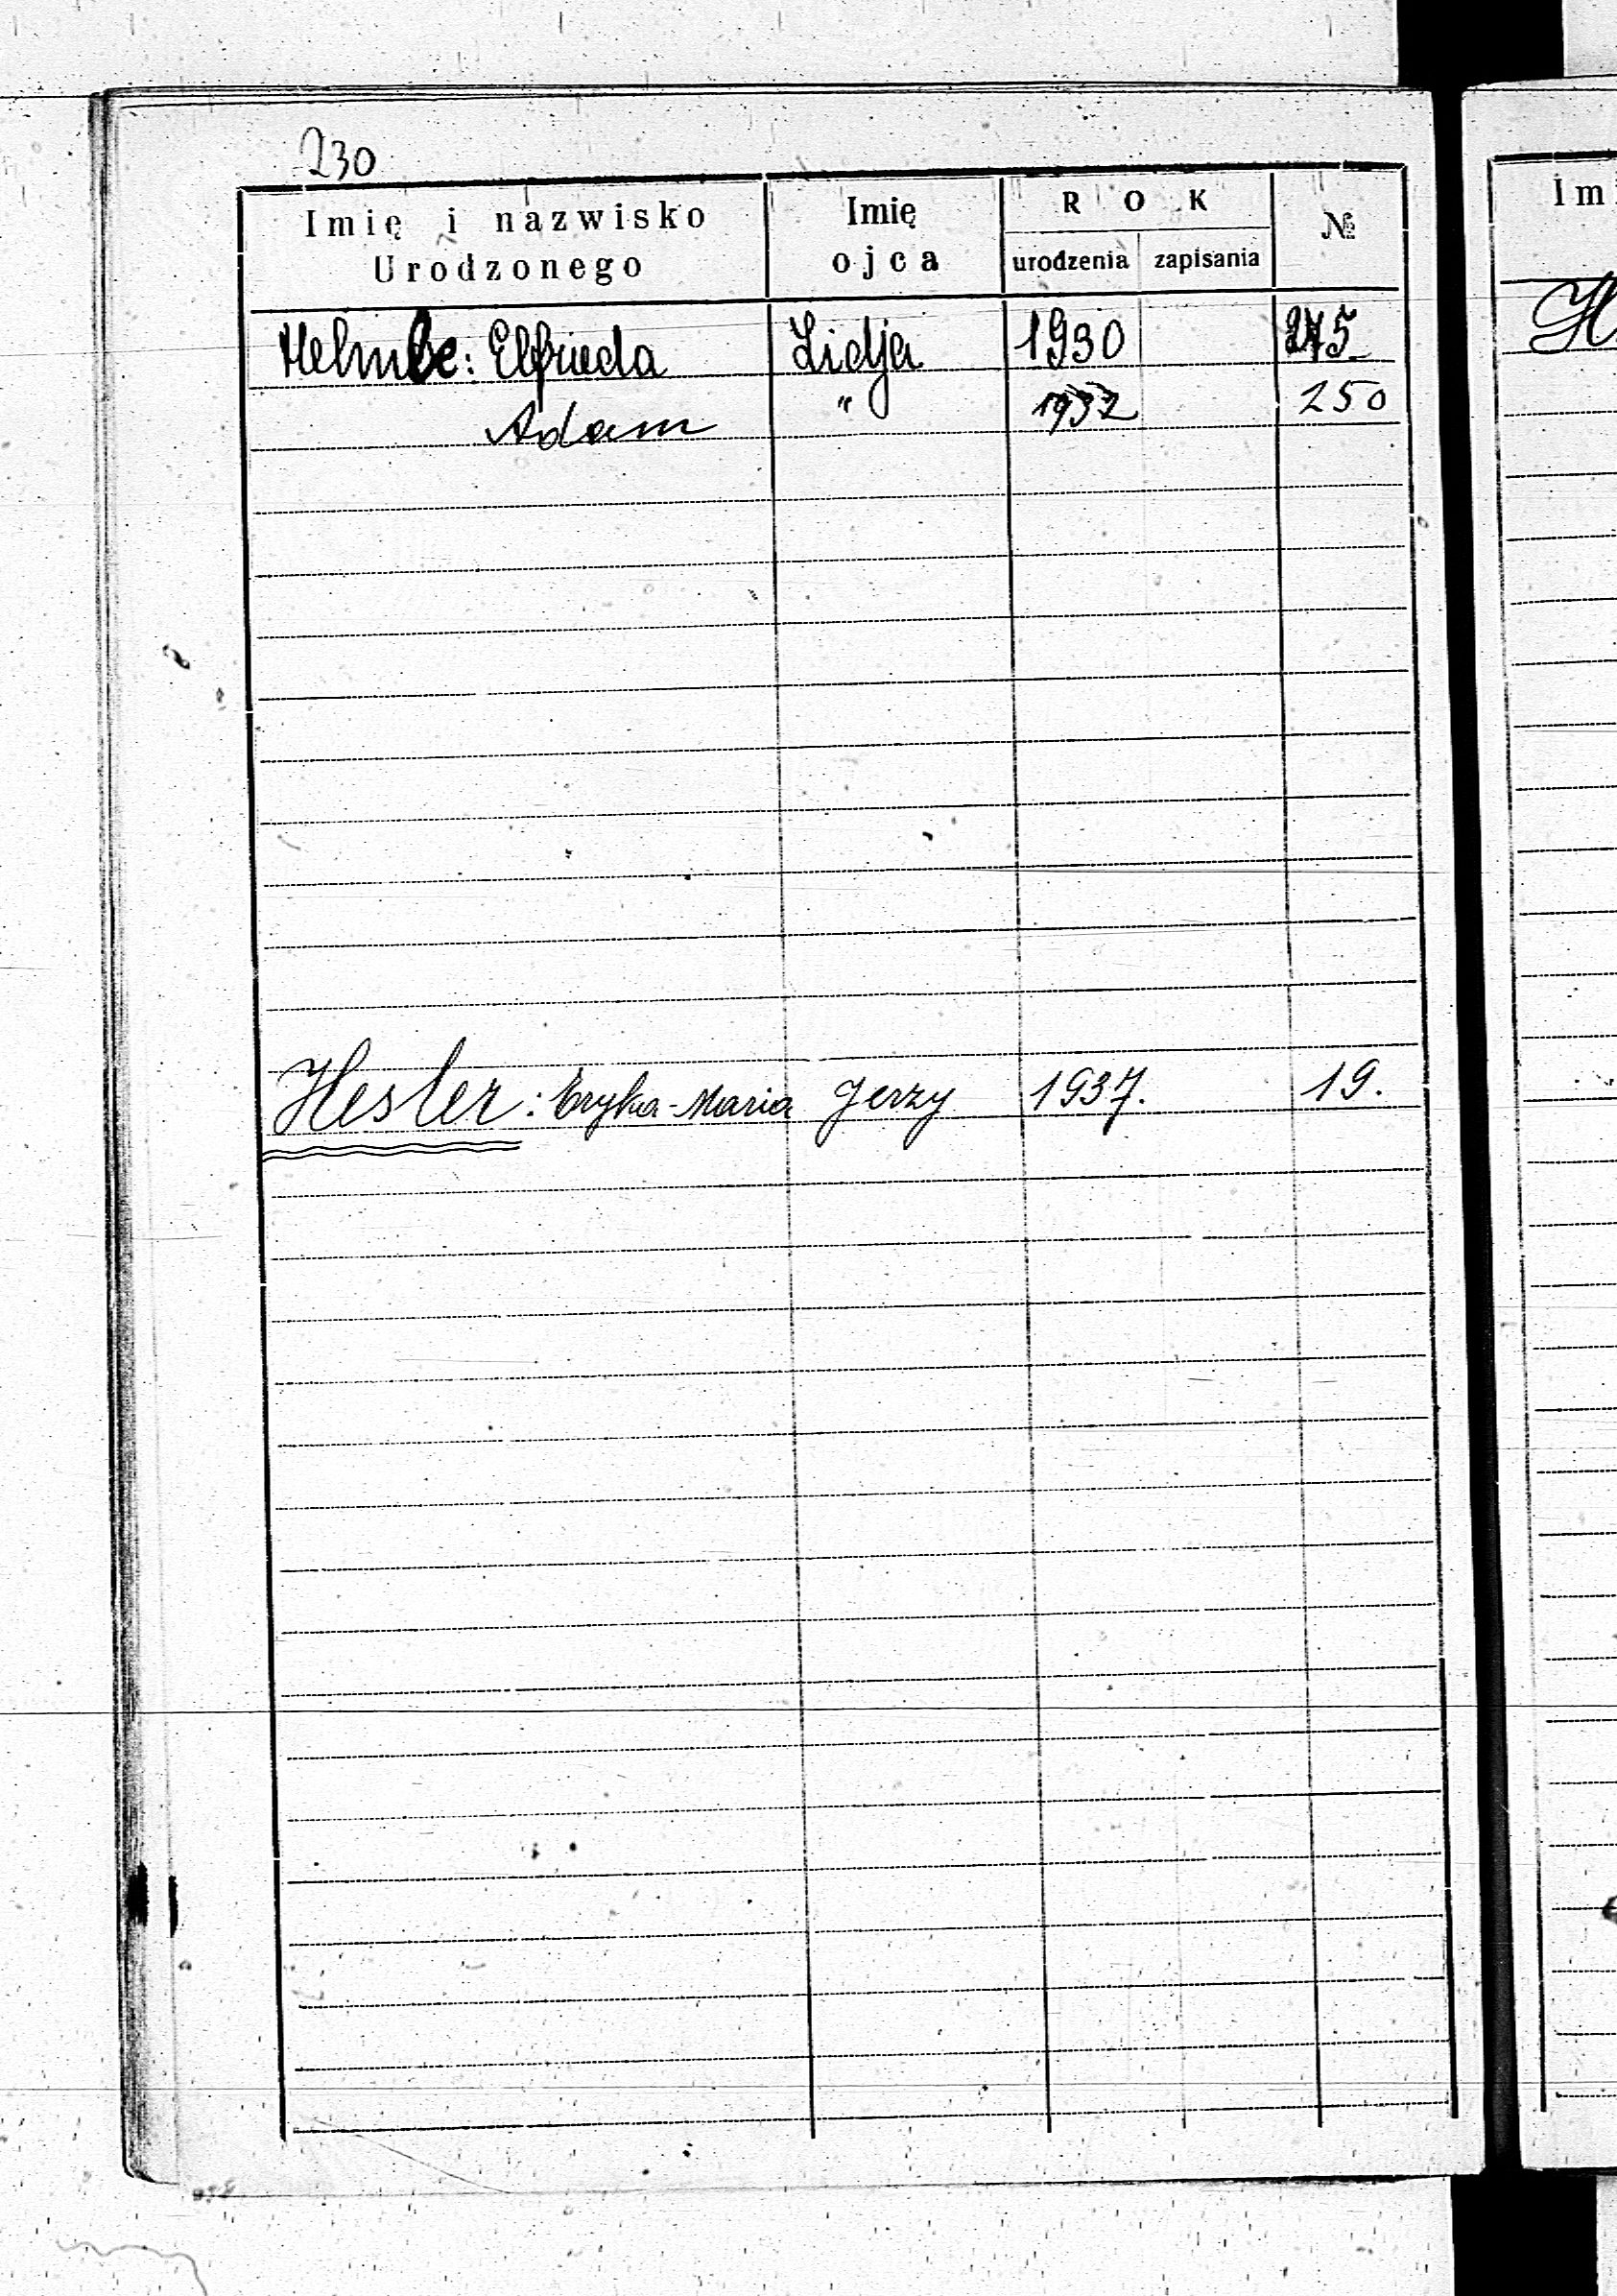 230
Imię i nazwisko Urodzonego Imię ojca ROK urodzenia zapisania №
Helmbe: Elfrieda Lidja 1930 245
Adam " 1932 250
Hesler: Eryka-Maria Jerzy 1937. 19.
Im
H